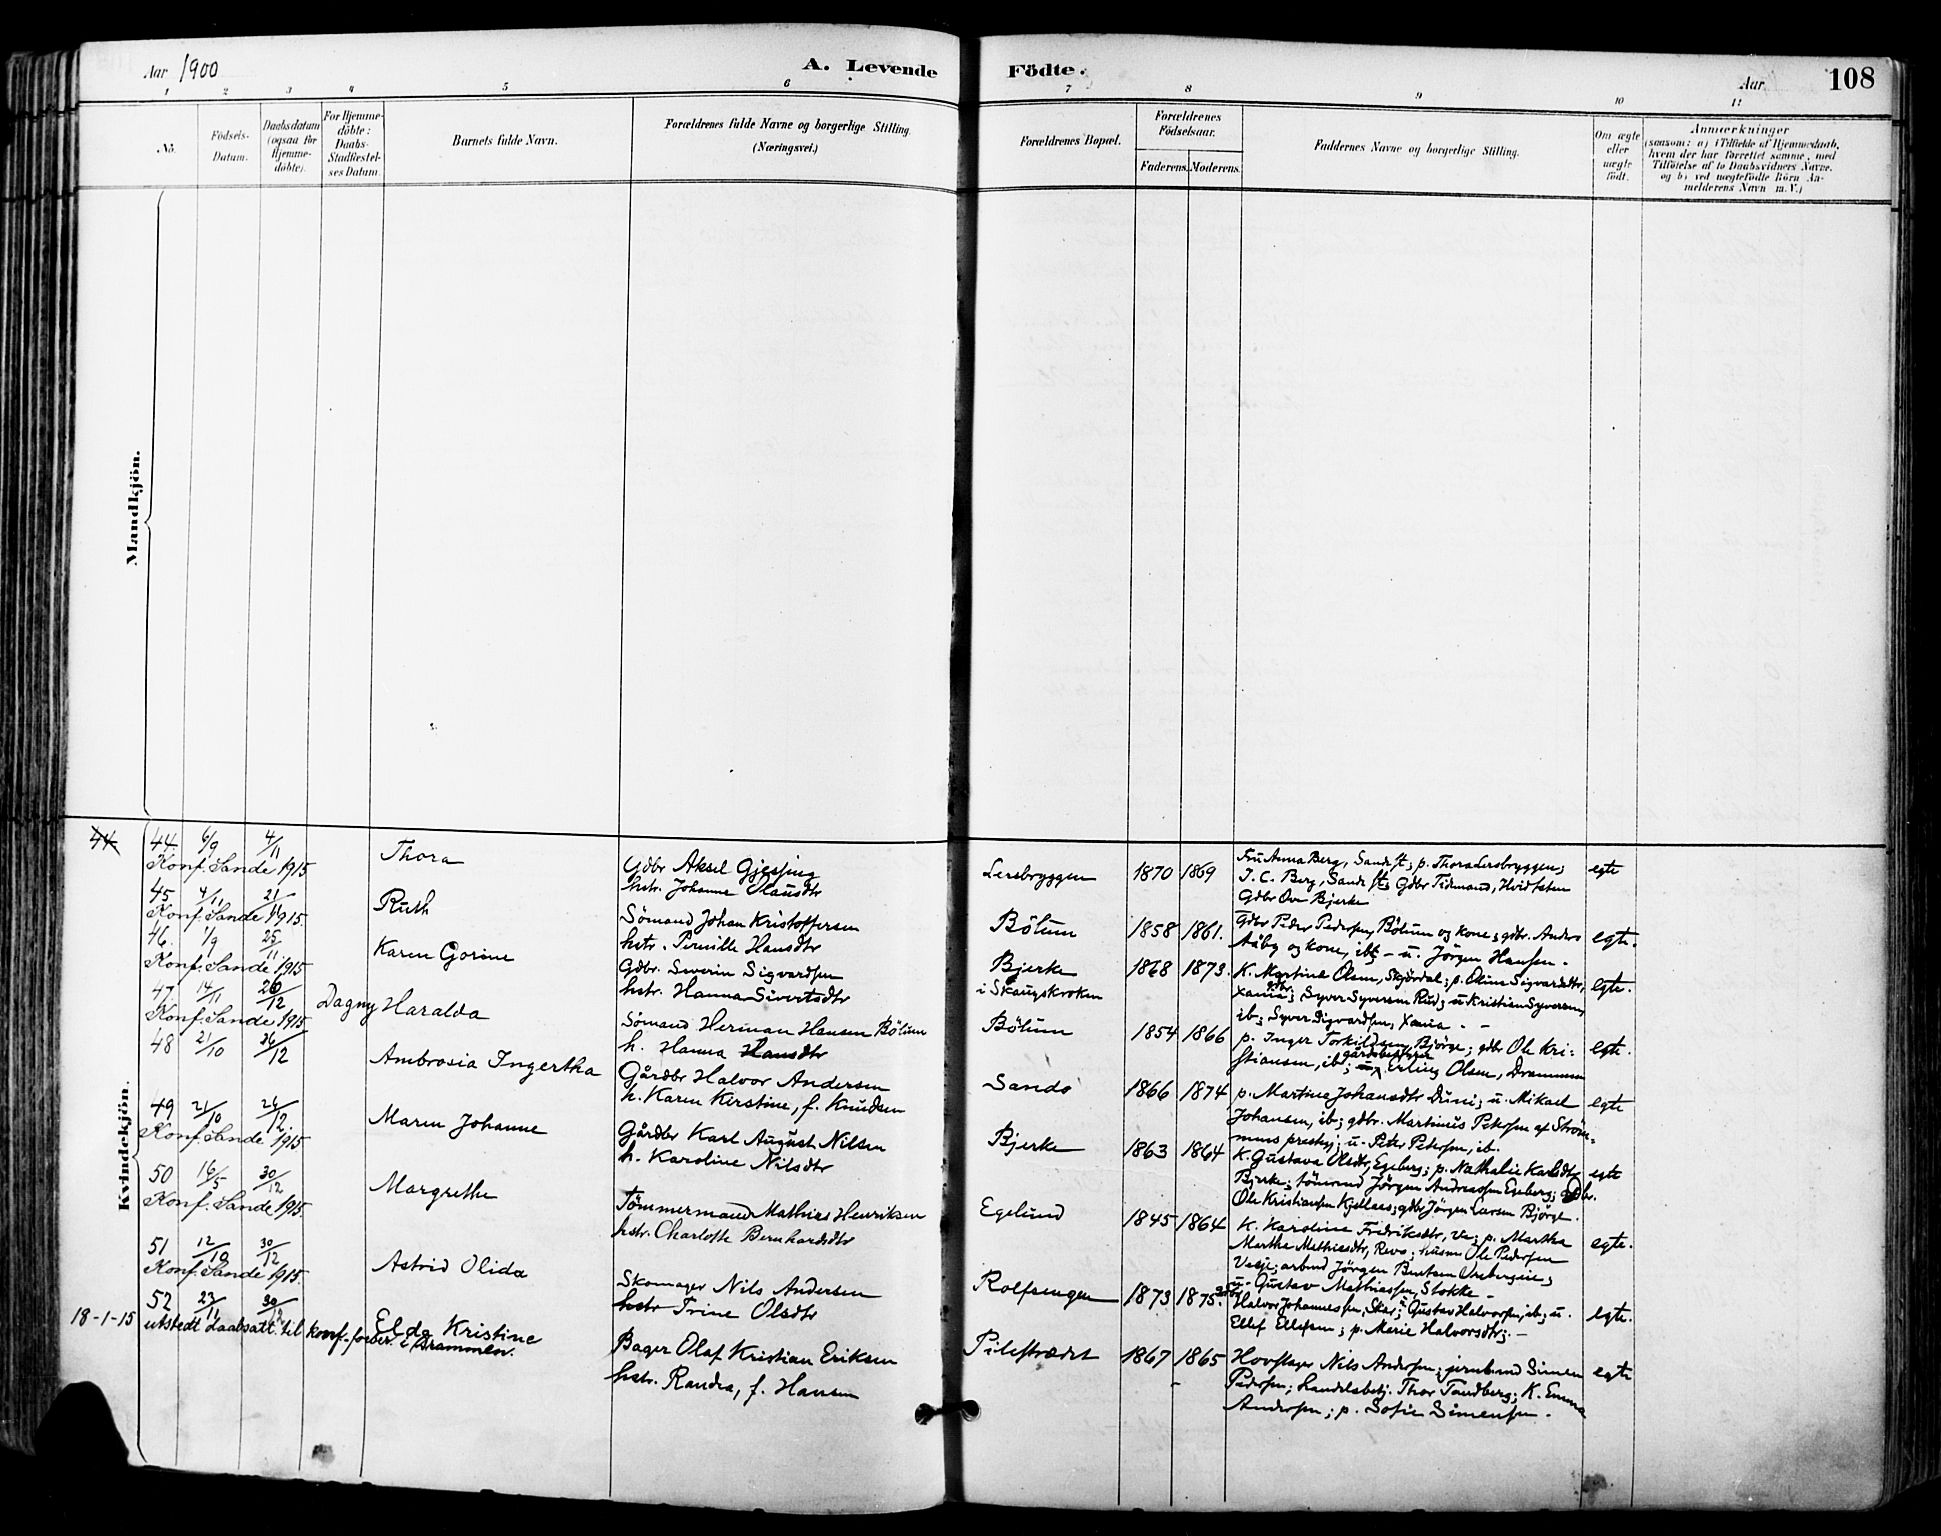 Aar 1900
A. Levende
Födte.
Aar
108
1 2 3 4 5 6 7 8 9 10 11
No.
Födsels-
Datum.
Daabsdatum
(ogsaa for
Hjemme-
döbte).
For Hjemme-
döbte:
Daabs-
Stadfæstel-
ses Datum.
Barnets fulde Navn.
Forældrenes fulde Navne og borgerlige Stilling
(Næringsvei.)
Forældrenes Bopæl.
Forældrenes
Födselsaar.
Faderens. Moderens.
Faddernes Navne og borgerlige Stilling.
Om ægte
eller
uægte
født.
Anmærkninger
(saasom: a) i Tilfælde af Hjemmedaab,
hvem der har forrettet samme, med
Tilföielse af to Daabsvidners Navne,
og b) ved uægtefödte Börn An-
melderens Navn m.V.)
Mandkjön.
Kvindekjön.
44 44. 6/9 4/11 Thora
Konf. Sande 1915
Gdbr Aksel Gjessing
hstr. Johanne Olausdtr
Lersbryggen 1870 1869
Fru Anna Berg, Sande st; p. Thora Lersbryggen;
J. C. Berg, Sande st; Gdbr Tidmand, Hvidsten
Gdbr Ove Bjerke
egte
45 4/11 21/11 Ruth
Konf. Sande 1915
Sömand Johan Kristoffersen
hstr. Pernille Hansdtr
Bölum 1858 1861.
Gdbr Peder Pedersen, Bölum og kone; gdbr. Anders
Aaby og kone, ibt; - u. Jörgen Hansen -
egte.
46. 1/9 25/11 Karen Gorine
Konf. Sande 1915
Gdbr. Severin Sigvardsen
hstr. Hanna Sivertsdtr
Bjerke
i Skaugskroken 1868 1873.
K. Martine Olsen, Skjördal; p. Oline Sigvardsdtr,
Xania; gdbr. Syver Syversen Rud; u Kristian Syversen,
ib; Syver Sigvardsen, Xania. -
egte.
47 14/11 26/12 Dagny Haralda
Konf. Sande 1915
Sömand Herman Hansen Bölum
h. Hanna Hansdtr
Bölum 1854 1866
p. Inger Torkildsen, Bjørge; gdbr Ole Kri-
stiansen, ib; u gårdsbestyrer Erling Olsen, Drammen
egte.
48 21/10 26/12 Ambrosia Ingertha
Gårdbr Halvor Andersen
h. Karen Kirstine, f. Knudsen
Sandø 1866 1874
p. Martine Johansdtr Duni; u. Mikael
Johansen, ib; gdbr. Martinus Petersen af Ström-
mens prestgj; u. Peter Petersen, ib.
egte
49 21/10 26/12. Maren Johanne
Konf. Sande 1915
Gårdbr Karl August Nilsen
h. Karoline Nilsdtr
Bjerke 1863 1864
K. Gustava Olsdtr, Egeberg; p. Nathalie Karlsdtr
Bjerke; tömmermd Jörgen Andreassen Egeberg; Gdbr.
Ole Kristiansen Kjellaas; gdbr Jörgen Larsen Bjørge.
egte
50 16/5 30/12 Margrethe
Konf. Sande 1915.
Tömmermand Mathias Henriksen
hstr. Charlotte Bernhardsdtr
Egelund 1845 1864
K. Karoline Fredriksdtr, ; p. Martha
Martha Mathiasdtr, Revo; husm Ole Pedersen
; arbmd Jörgen Berntsen ;
u. Gustav Mathiassen, Stokke -
egte.
51 12/10 30/12 Astrid Olida
Konf. Sande 1915.
Skomager Nils Andersen
hstr Trine Olsdtr
Rolfsengen 1873 1875.
Gdbr Halvor Johannessen, Skar; u Gustav Halvorsen, ib; u.
Ellef Ellefsen; p. Marie Halvorsdtr; -
egte.
52 23/11 30/12 Elda Kristine
18-1-15 utstedt daabsatt. til konf.-forber. i Drammen.
Bager Olaf Kristian Eriksen
hstr. Randia, f. Hansen
Pilestrædet 1867 1865
Hovslager Nils Andersen; jernbmd Simen
Pedersen; handelsbetj. Thor Tandberg; K. Emma
Andersen; p. Sofie Simensen.
egte